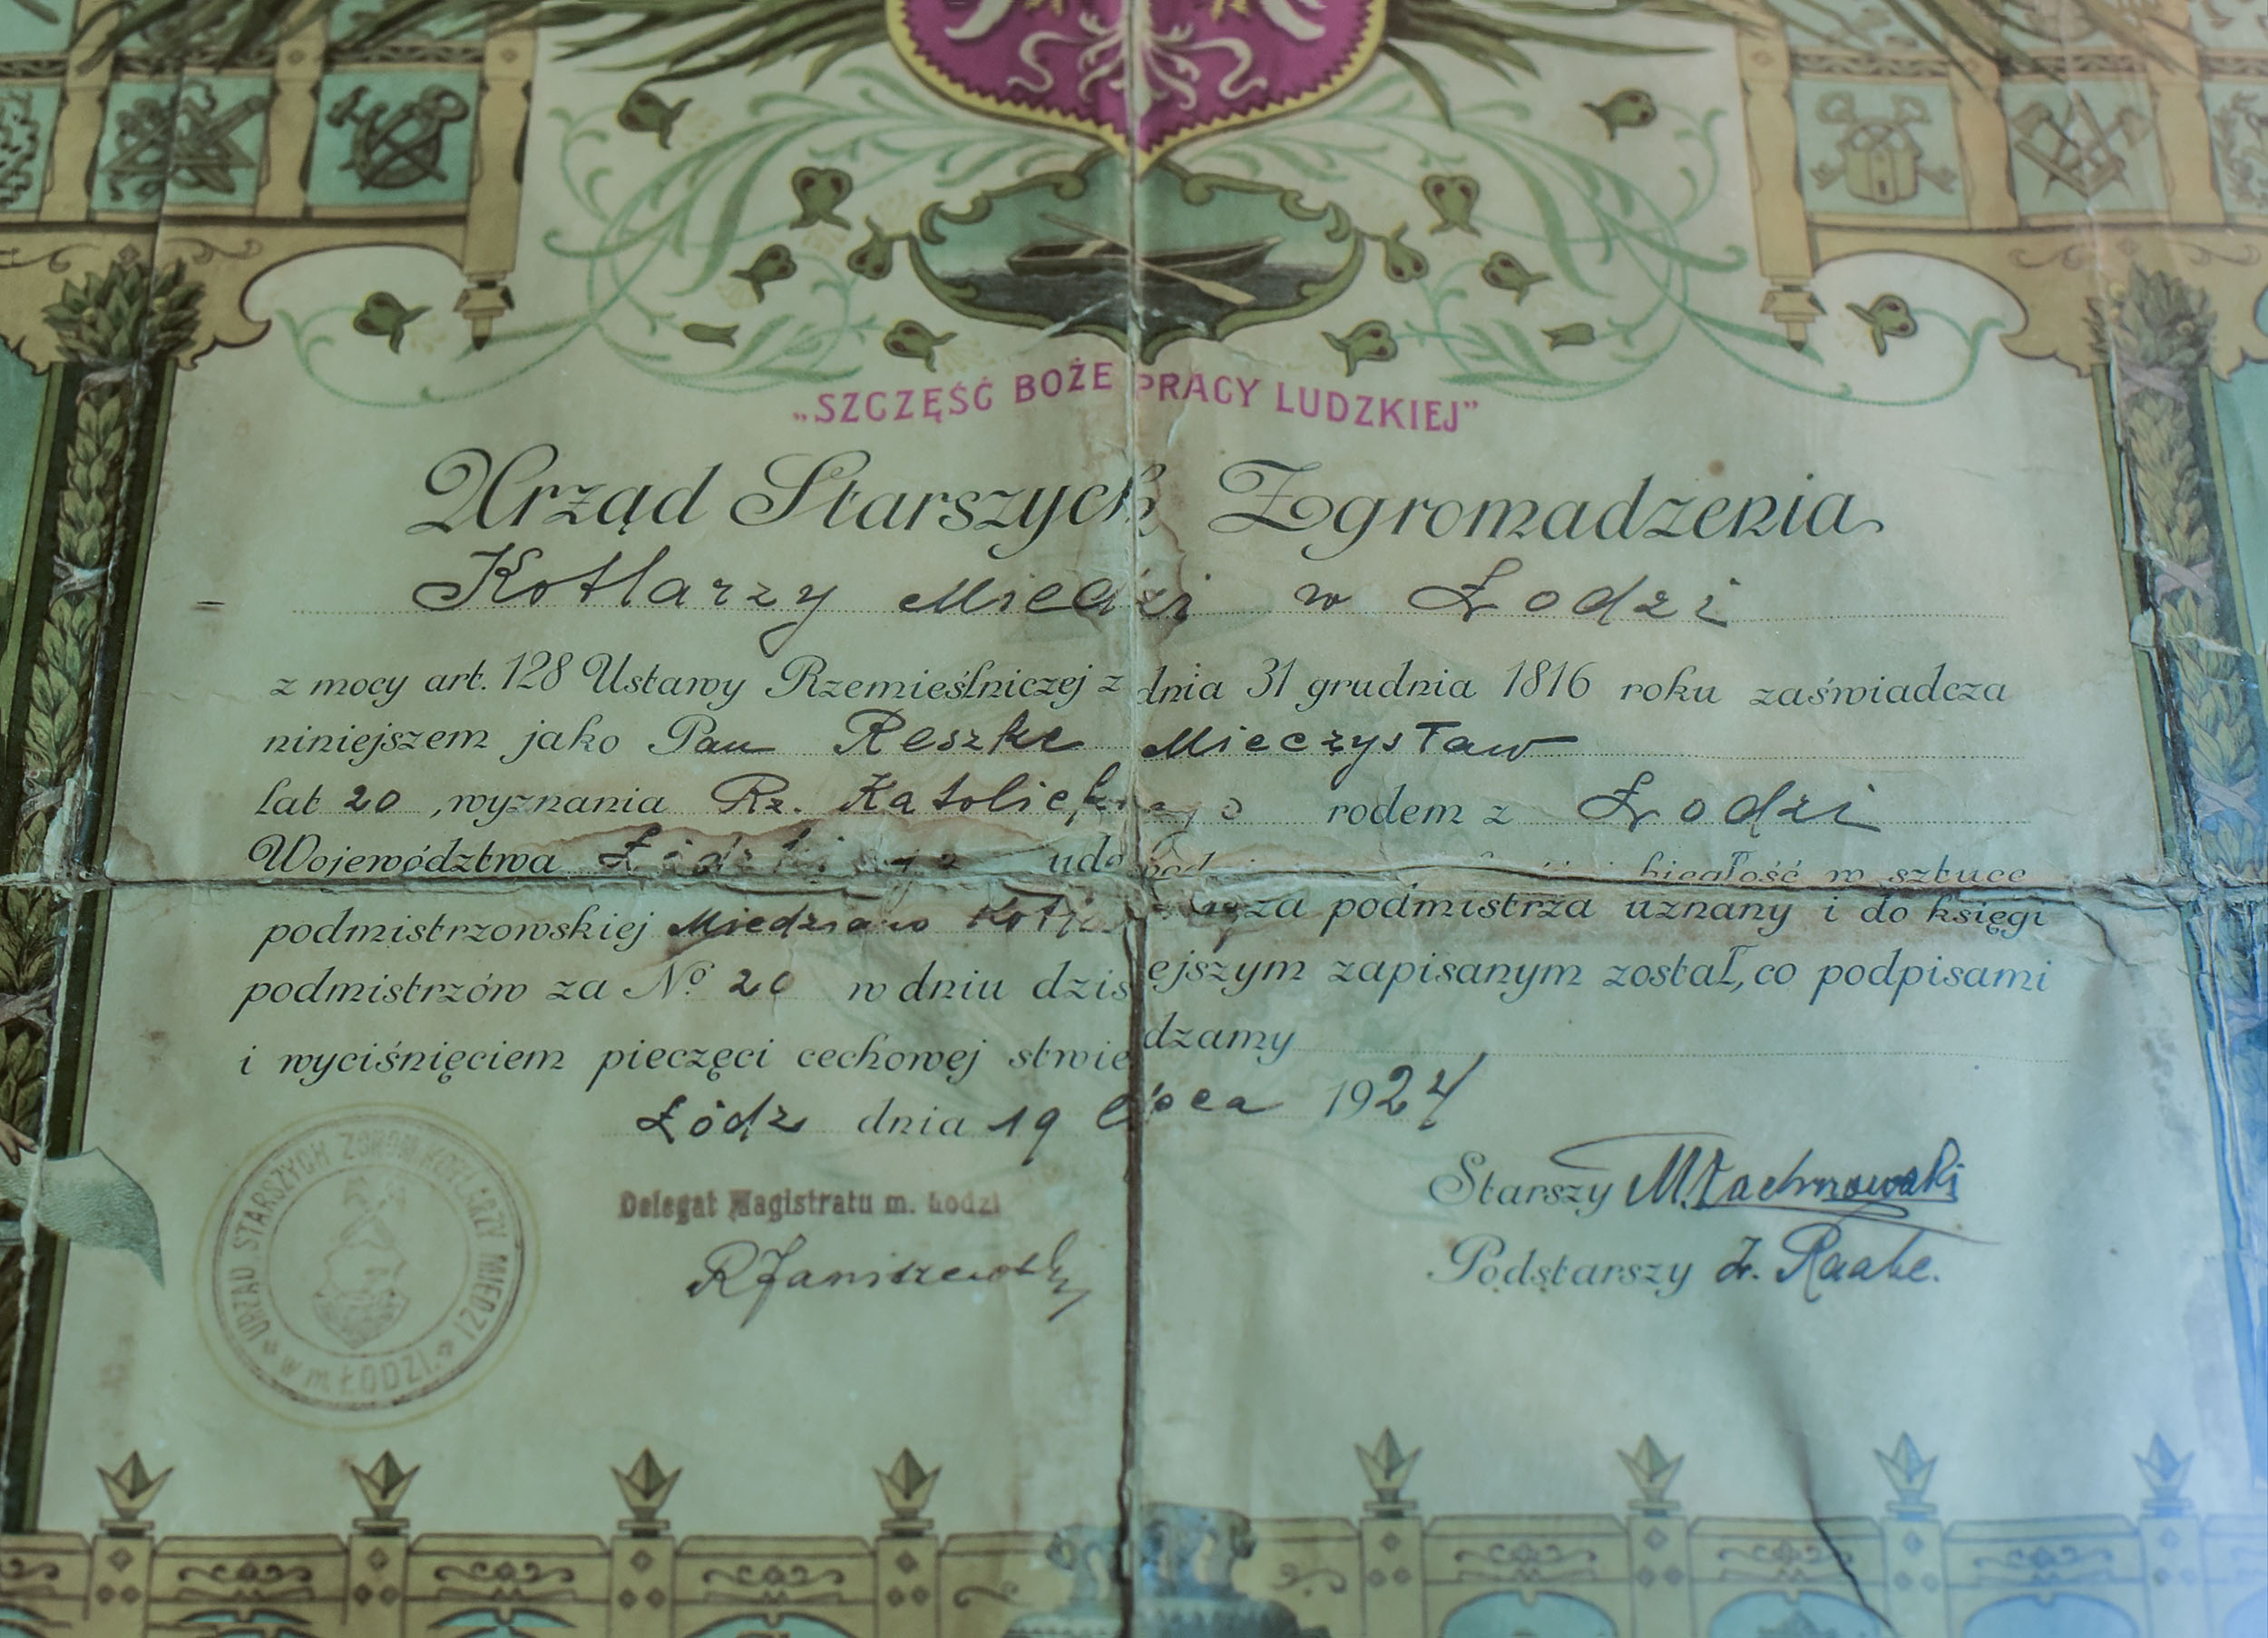 „SZCZĘŚĆ BOŻE PRACY LUDZKIEJ”
Urząd Starszych Zgromadzenia
Kotlarzy Miedzi w Łodzi
z mocy art. 128 Ustawy Rzemieślniczej z dnia 31 grudnia 1816 roku zaświadcza
niniejszem jako Pan Reszke Mieczysław
lat 20, wyznania Rz. Katolickiego rodem z Łodzi
Województwa Łódzkiego biegłość w sztuce
podmistrzowskiej za podmistrza uznany i do księgi
podmistrzów za No 20 w dniu dzisiejszym zapisanym został, co podpisami
i wyciśnięciem pieczęci cechowej stwierdzamy
Łódz dnia 19 lipca 1924
URZĄD STARSZYCH ZGROM. KOTLARZY MIEDZI
w m. ŁODZI.
Delegat Magistratu m. Łodzi
R Janiszewski
Starszy M.
Podstarszy Raabe.